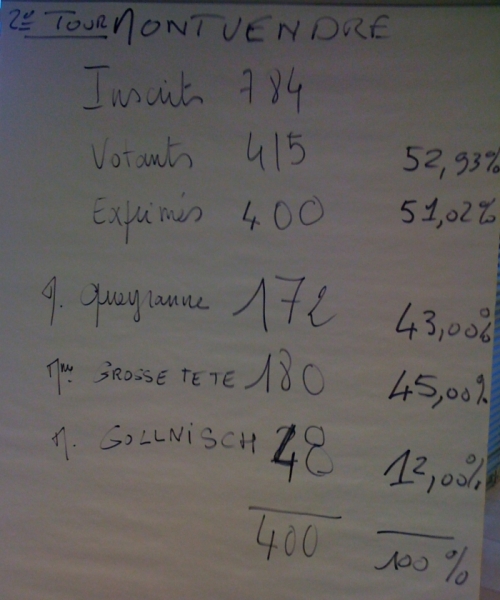 2e TOUR MONTVENDRE
Inscrits 784
Votants 415 52,93%
Exprimés 400 51,02%
M. Queyranne 172 43,00%
Mme GROSSETETE 180 45,00%
M. GOLLNISCH 48 12,00%
400 100 %